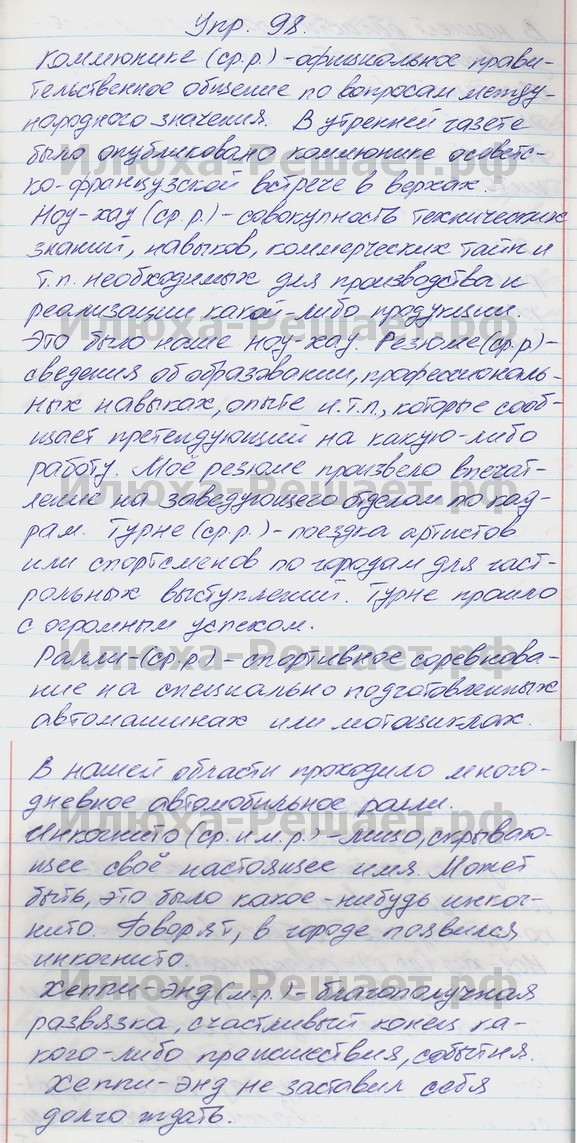 Упр. 98.
Коммюнике (ср.р.) - официальное прави-
тельственное общение по вопросам между-
народного значения. В утренней газете
было опубликовано коммюнике о советс-
ко-французской встрече в верхах.
Ноу-хау (ср.р.) - совокупность технических
знаний, навыков, коммерческих тайн и
т.п. необходимых для производства и
реализации какой-либо продукции.
Это было наше ноу-хау. Резюме (ср.р) -
сведения об образовании, профессиональ-
ных навыках, опыте и.т.п., которые сооб-
щает претендующий на какую-либо
работу. Моё резюме произвело впечат-
ление на заведующего отделом по кад-
рам. Турне (ср.р.) - поездка артистов
или спортсменов по городам для гаст-
рольных выступлений. Турне прошло
с огромным успехом.
Ралли - (ср.р.) - спортивное соревнова-
ние на специально подготовленных
автомашинах или мотоциклах.
В нашей области проходило много-
дневное автомобильное ралли.
Инкогнито (ср. и м.р.) - лицо, скрываю-
щее своё настоящее имя. Может
быть, это было какое-нибудь инког-
нито. Говорят, в городе появился
инкогнито.
Хеппи-энд (м.р.) - благополучная
развязка, счастливый конец ка-
кого-либо происшествия, события.
Хеппи-энд не заставил себя
долго ждать.
Илюха-Решает.рф
Илюха-Решает.рф
Илюха-Решает.рф
Илюха-Решает.рф
Илюха-Решает.рф
Илюха-Решает.рф